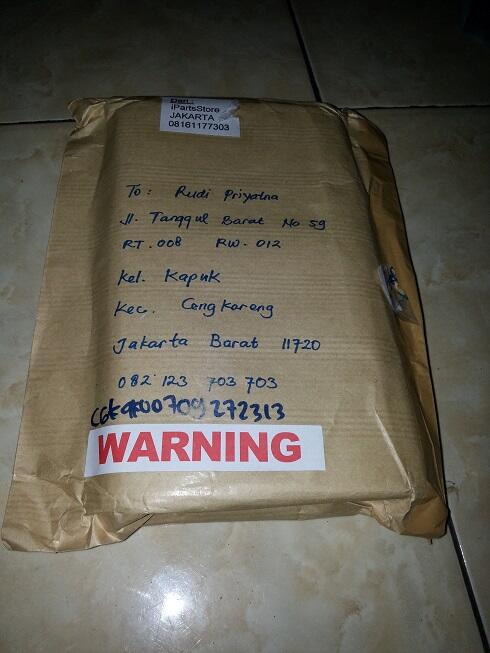 Dari:
iPartsStore
JAKARTA
08161177303
To: Rudi Priyatna
Jl. Tanggul Barat No 59
RT. 008 RW. 012
Kel. Kapuk
Kec. Cengkareng
Jakarta Barat 11720
082 123 703 703
WARNING